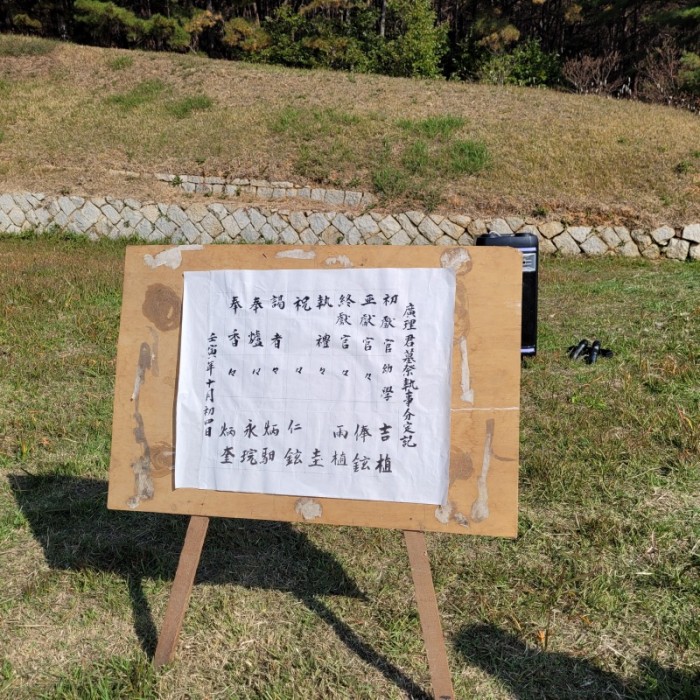 廣理君墓祭執事分定記
初獻官幼學 吉植
亞獻官 々 俸鉉
終獻官 々 雨植
執禮 々 圭
祝 々 仁鉉
謁者 々 炳馹
奉爐 々 永琓
奉香 々 炳奎
壬寅年十月初四日